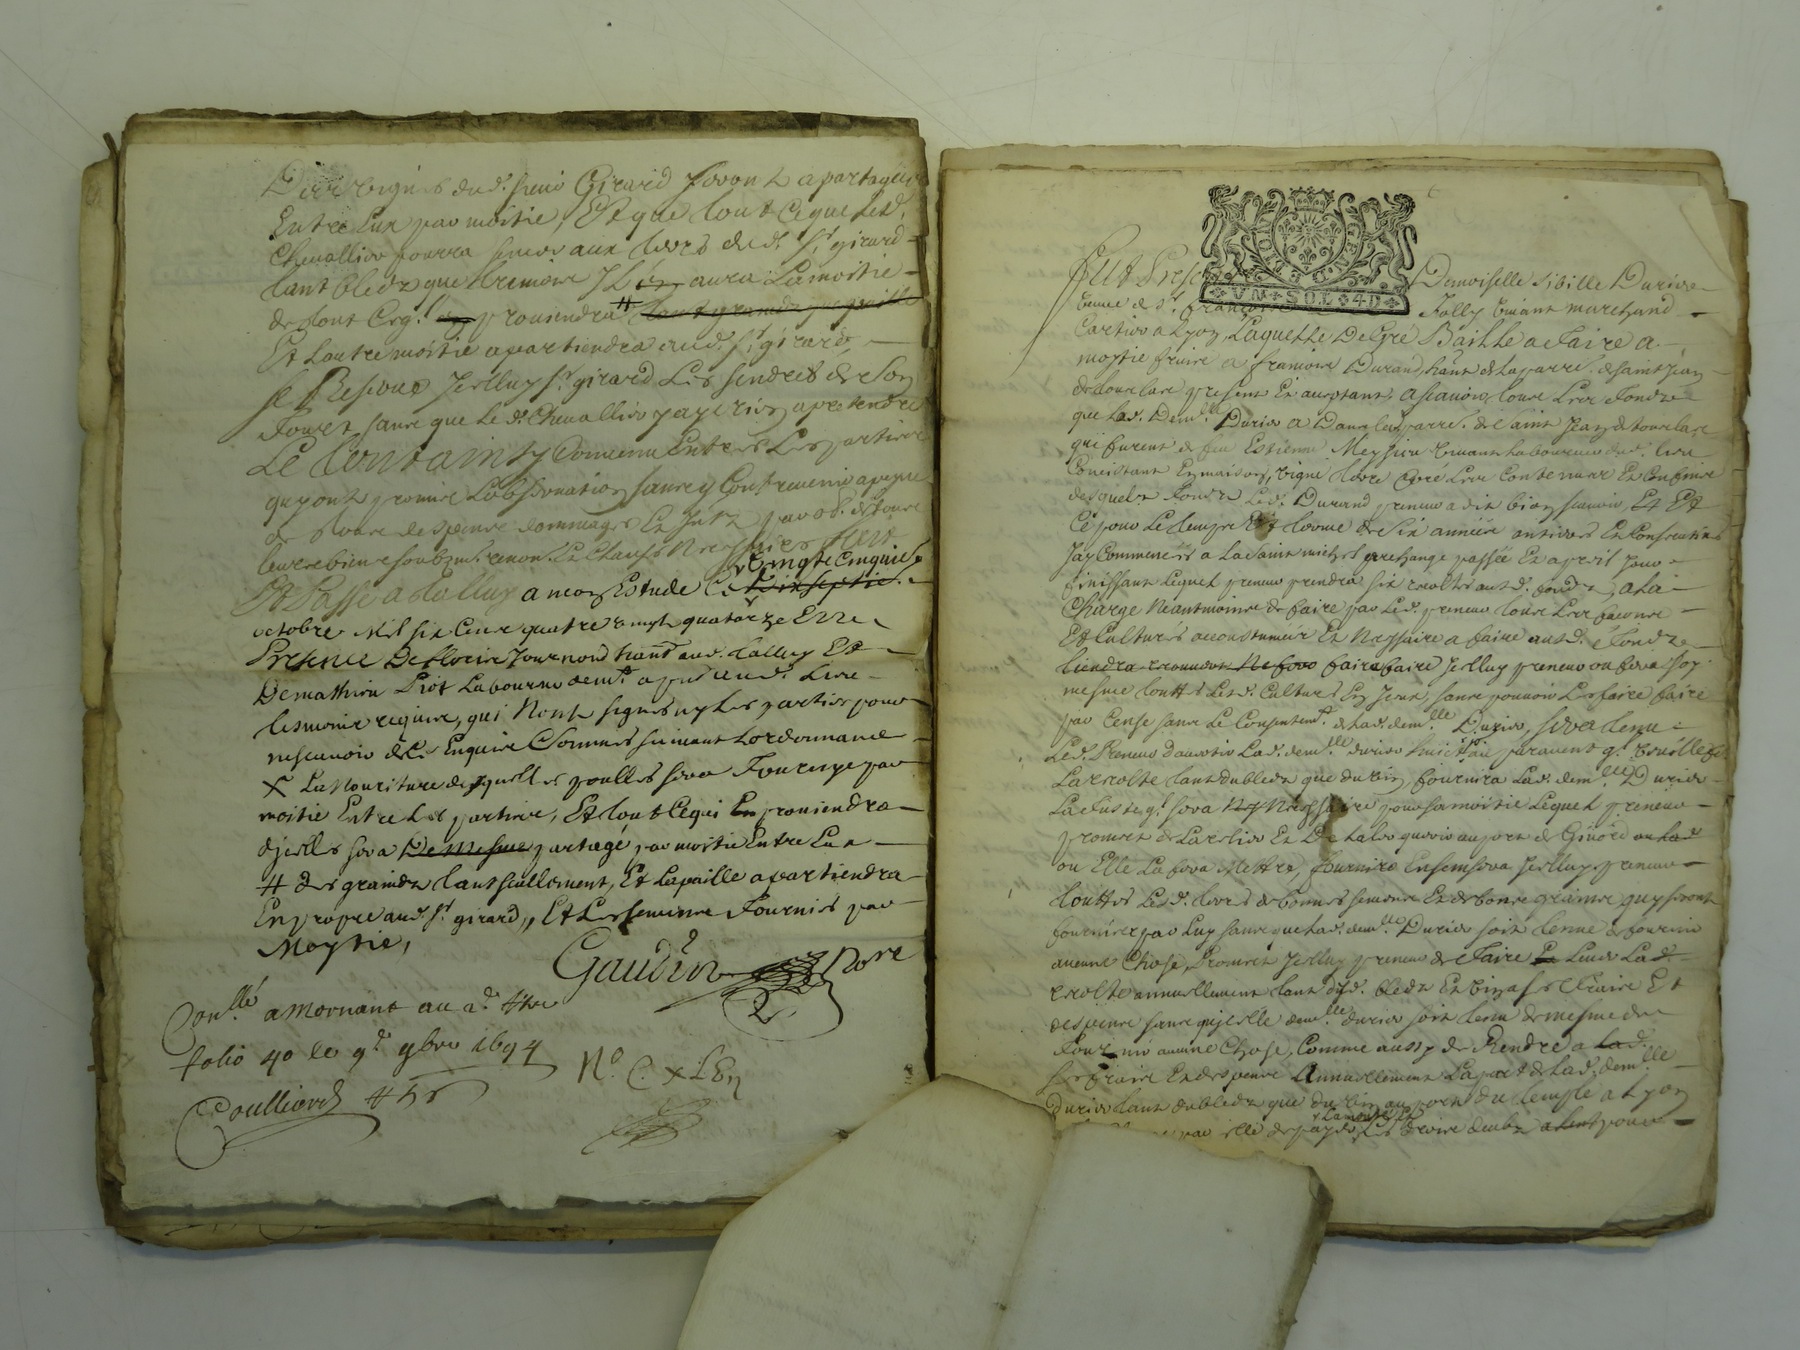 Des vignes dud. sieur Girard seront apartagées
Entre Eux par moitié, Et que tout ce que led.
Chevallier pourra semer aux terres dud. Sr. girard
tant bledz que tremois Il en aura La moitié
de tout ce q. en proviendra #
Et Lautre moitié apartiendra aud. Sr. girard,
se Reserve Jcelluy Sr. girard Les cendres de son
Four sans que le d. Chevallier y aye rien a pretendre
Le Containu Convenu Entre Les parties
qui ont promis Lobservation sans y Contrevenir a peyne
de tous despens dommages Et
leurs biens soubzmis renon. Et Clauses Necess.
Et Passé a Talluy a mon Estude Ce vingt Cinquies.
octobre Mil six Cens quatre vingt quatorze En
Presence De Journoud hant. aud. talluy Et
De mathieu Piot Laboureur dem.t
tesmoins requis, qui Nont signés ny Les parties pour
ne scavoir de Ce Enquis Sommés suivant Lordonnance
X La Nouriture desquelles poulles sera Fournye par
moitié Entre Les parties, Et tout Ce qui En proviendra
dJcelles sera De Mesme partagé par moitié Entre Eux
# des grains tant seullement, Et La paille apartiendra
En propre aud. Sr. girard, Et Les semences Fournies par
Moytié,
Gaudin Nore
Conllé a Mornant au 2e. Rre
folio 40 le 9e. 9bre 1694
Coulliard
No. C.
VN SOL 4D
FUt Present Demoiselle Sibille Durier
veuve de Sr. François Jolly vivant marchand
Cartier a Lyon, Laquelle De Gré Baille a Faire a
moytié fruits a François Durand, hant. de La parre. de Saint Jean
de touslas present Et acceptant, Ascavoir tous Les Fondz
que Lad. Demlle Durier a Dans la parre. de Saint Jean de touslas
qui furent de feu Estienne Meyssin vivant Laboureur dud. Lieu
Consistant En maison, vigne terre Pré Les Contenances Et Confins
desquelz Fondz Led. Durand preneur a dit bien scavoir, Et Est
Ce pour Le temps Et terme de Six années entieres Et Consecutives
Jay Commencées a La Saint michel archange passée Et a pareil Jour
finissant Lequel preneur prendra six recoltes ausd. fondz, a La
Charge Neantmoins de faire par Led. preneur tous Les faconse
Et Cultures accoustumées Et Necessaires a faire ausd. Fondz
faire Jcelluy preneur ou fera Soy
mesme touttes Lesd. Cultures sans pouvoir Les faire faire
par Cense sans Le Consentemt. de Lad. demlle Durier, Sera tenu
Led. Preneur davertir Lad. demlle durier huict Jours auparavent
La recolte tant du bledz que du vin, fournira Lad. demlle Durier
La Fuste q. sera Necessaire pour sa moitié Lequel preneur
promet de Larelier Et De Laler querir au port de Givord
ou Elle La fera Mettre, fournira Jcelluy preneur
touttes Lesd. terres de bonnes semences Et de bonne graines qui seront
fournies par Luy sans que Lad. demlle Durier soit tenue de fournir
aucune Chose, Promet Jcelluy preneur de Faire Lad.
recolte annuellement tant dud. bledz Et vin a ses Fraix Et
despens sans que Jcelle demlle durier soit tenue de mesme de
Fournir aucune Chose, Comme aussy de Rendre a Lad.
ses fraix Et despens Annuellement La part de Lad. demlle
Durier tant du bledz que du vin au port du temple a Lyon
par elle de payer La moitié Et Les droits deubz pour